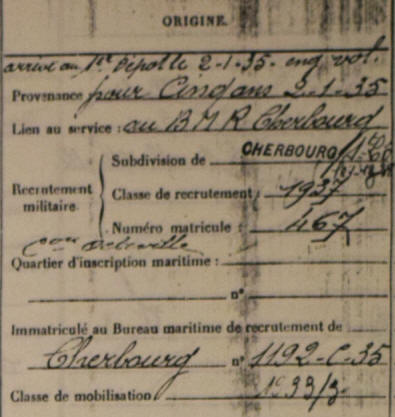 ORIGINE.
arrivé au 1er Dépôt le 2-1-35. eng. vol.
Provenance pour Cinq ans 2-1-35
Lien au service : au BMR Cherbourg
Subdivision de CHERBOURG
Recrutement militaire.
Classe de recrutement : 1937
Numéro matricule : 467
Quartier d'inscription maritime :
n°
Immatriculé au Bureau maritime de recrutement de
Cherbourg n° 1192-C-35
Classe de mobilisation 1933/3